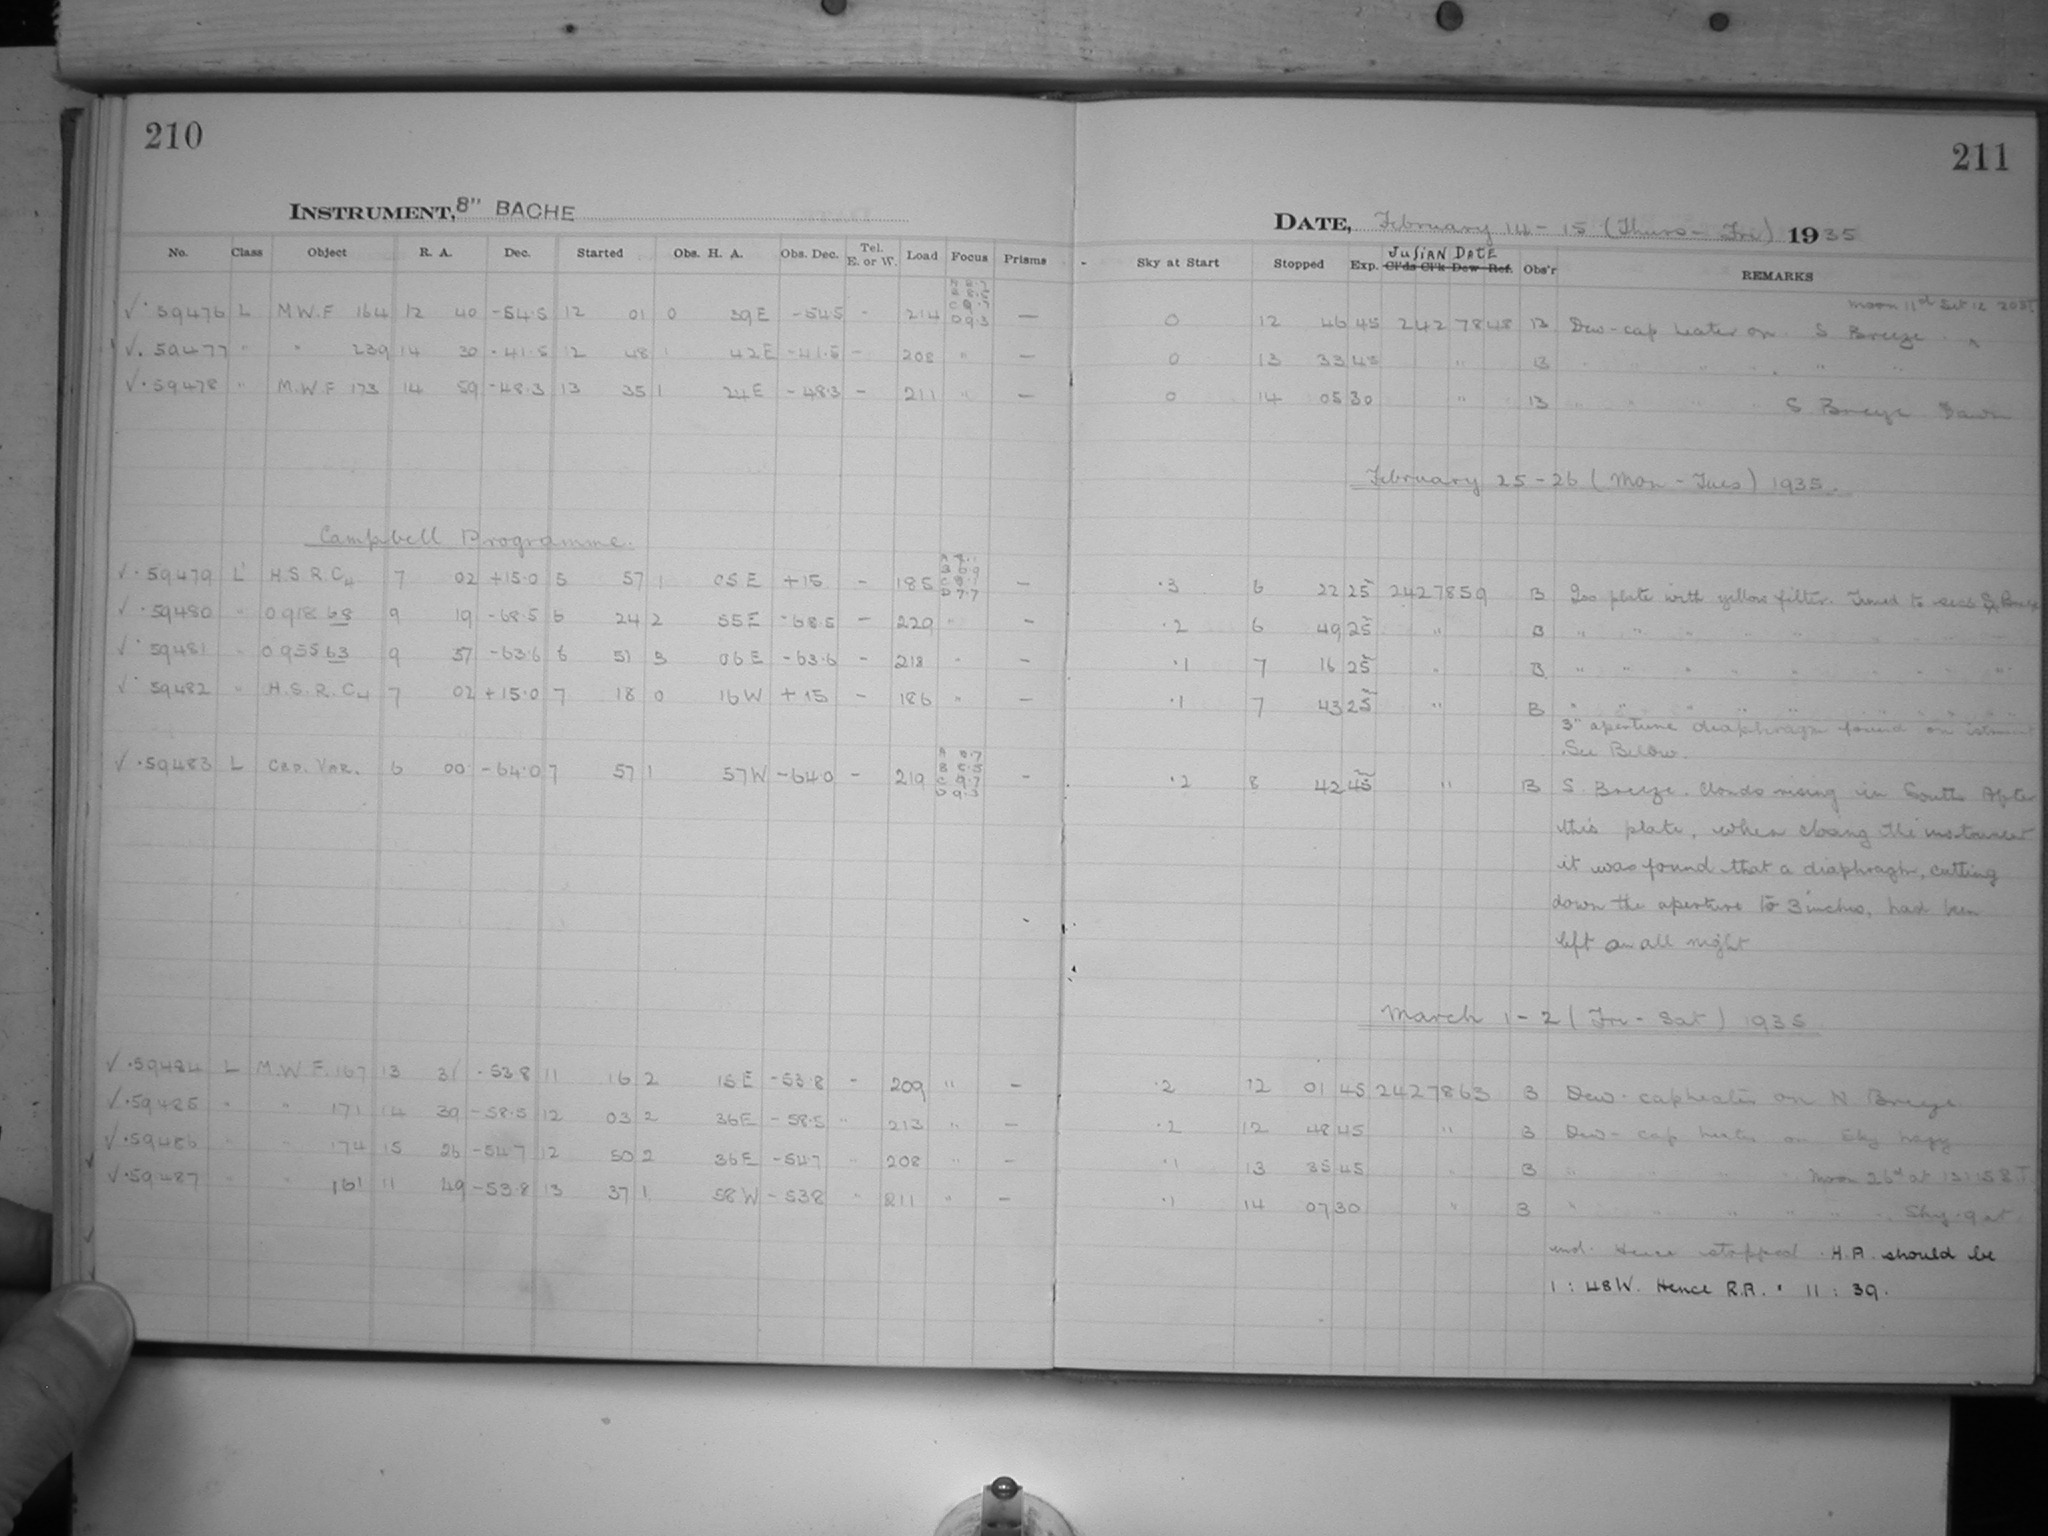 210
211
INSTRUMENT, 8" BACHE
DATE, February 14-15 (Thurs - Fri) 1935
No. Class Object R. A. Dec. Started Obs. H. A. Obs. Dec. Tel. E. or W. Load Focus Prisms Sky at Start Stopped Exp. JULIAN DATE Cl'ds Cl'k Dew Ref. Obs'r REMARKS
✓ 59476 L M.W.F 164 12 40 -54.5 12 01 0 39E -54.5 - 214 C 9.7 D 9.3 — 0 12 46 45 242 7848 B Dew-cap heater on. S Breeze.
✓ 59477 " " 239 14 30 -41.5 12 48 1 42E -41.5 - 208 " — 0 13 33 45 " B " " " " "
✓ 59478 " M.W.F 173 14 59 -48.3 13 35 1 24E -48.3 - 211 " — 0 14 05 30 " B " " " S Breeze Dawn
February 25-26 (Mon - Tues) 1935.
Campbell Programme.
✓ 59479 L H.S.R.C4 7 02 +15.0 5 57 1 05E +15 - 185 — .3 6 22 25 2427859 B Iso plate with yellow filter.
✓ 59480 " 091868 9 19 -68.5 6 24 2 55E -68.5 - 229 " - .2 6 49 25 " B " " " " "
✓ 59481 " 095563 9 57 -63.6 6 51 3 06E -63.6 - 218 " - .1 7 16 25 " B " " " " "
✓ 59482 " H.S.R.C4 7 02 +15.0 7 18 0 16W +15 - 186 " — .1 7 43 25 " B " " " " "
3" aperture diaphragm found on
See Below.
✓ 59483 L Cep. Var. 6 00 -64.0 7 57 1 57W -64.0 - 219 C 9.7 D 9.3 - .2 8 42 45 " B S. Breeze. Clouds rising in South After
this plate, when closing the instrument
it was found that a diaphragm, cutting
down the aperture to 3 inches, had been
left on all night
March 1-2 (Fri - Sat) 1935.
✓ 59484 L M.W.F. 167 13 31 -53.8 11 16 2 15E -53.8 - 209 " - .2 12 01 45 2427863 B Dew-cap heater on N Breeze
✓ 59485 " " 171 14 39 -58.5 12 03 2 36E -58.5 " 213 " - .2 12 48 45 " B Dew-cap heater on Sky hazy
✓ 59486 " " 174 15 26 -54.7 12 50 2 36E -54.7 " 208 " - .1 13 35 45 " B " " " Moon 26d at 13:15 S.T.
✓ 59487 " " 161 11 49 -53.8 13 37 1 58W -53.8 " 211 " - .1 14 07 30 " B " " " " " Sky .9 at
end. Hence stopped. H.A. should be
1:48W. Hence R.A. = 11:39.